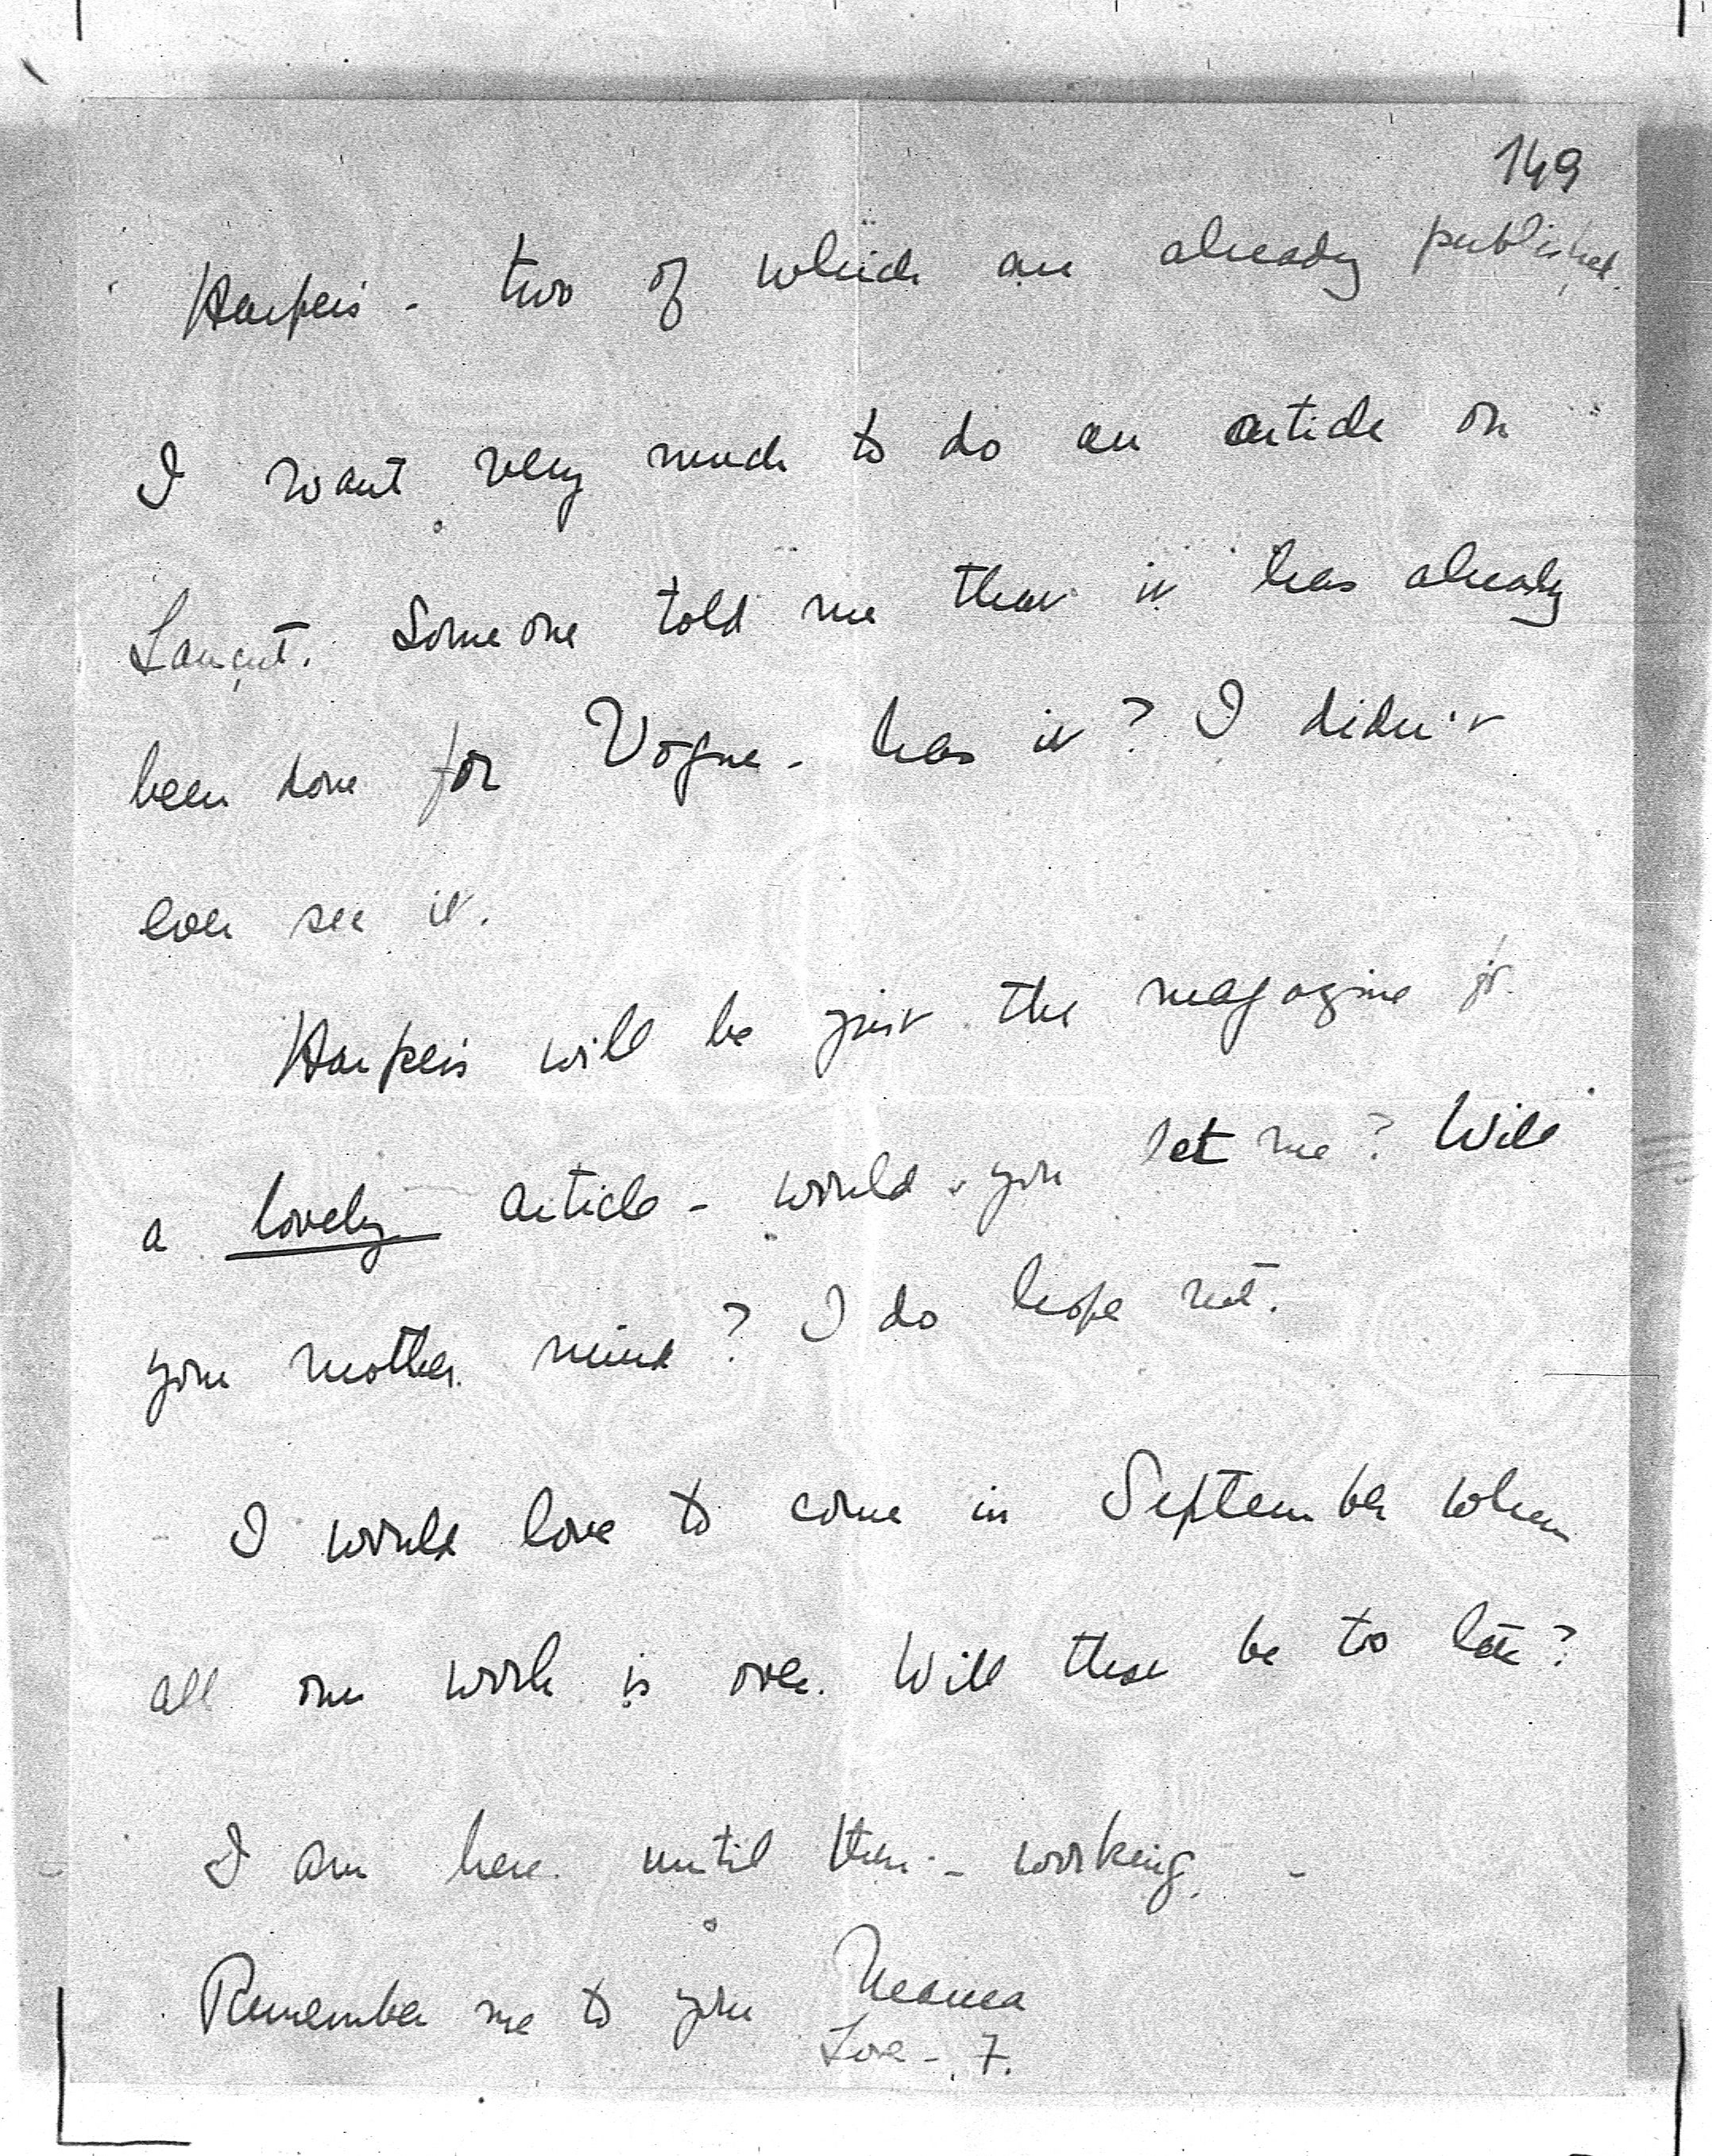 149
Harpers - two of which are already published.
I want very much to do an article on
Łańcut. Someone told me that it has already
been done for Vogue - has it? I didn't
ever see it.
Harpers will be just the magazine for
a lovely article - would you let me? Will
your mother mind? I do hope not.
I would love to come in September when
all our work is over. Will that be too late?
I am here until then - working. -
Remember me to your Mama
Love - 7.